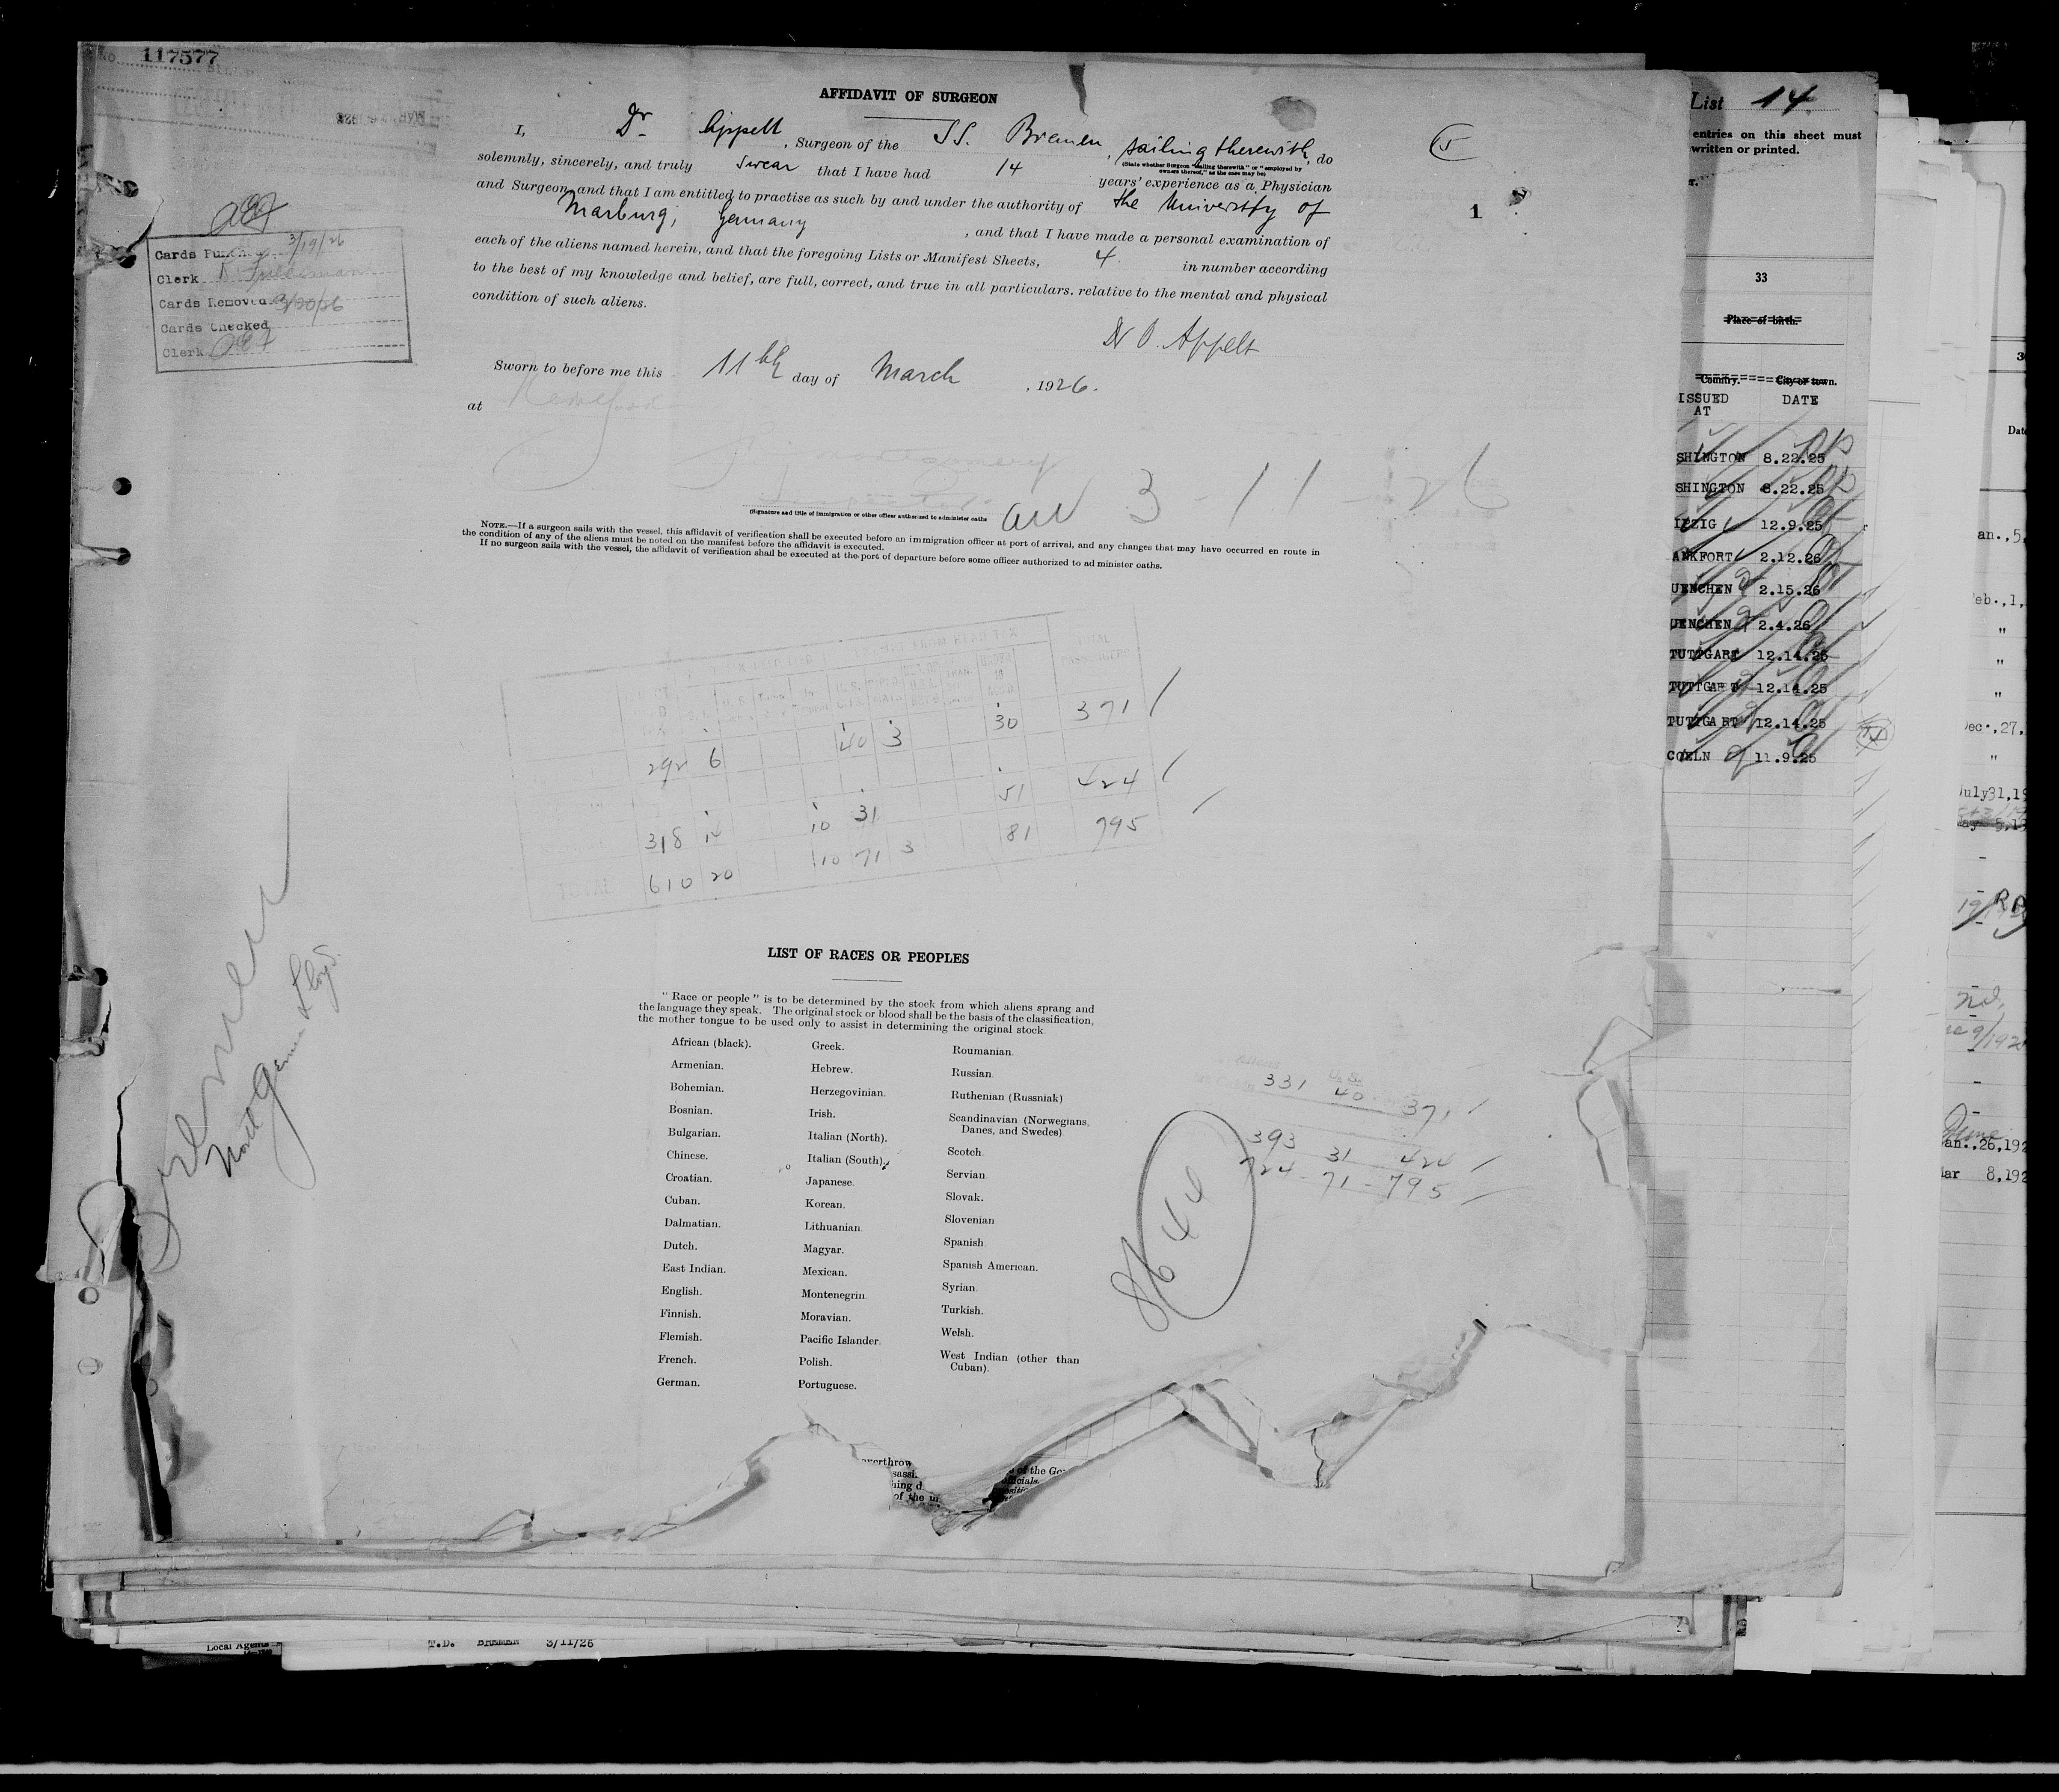 No. 117577
AFFIDAVIT OF SURGEON
I, Dr. Appelt, Surgeon of the SS. Bremen, sailing therewith, do
(State whether Surgeon "sailing therewith" or "employed by
owners thereof," as the case may be)
solemnly, sincerely, and truly swear that I have had 14 years' experience as a Physician
and Surgeon, and that I am entitled to practise as such by and under the authority of the University of
Marburg, Germany, and that I have made a personal examination of
each of the aliens named herein, and that the foregoing Lists or Manifest Sheets, 4 in number according
to the best of my knowledge and belief, are full, correct, and true in all particulars. relative to the mental and physical
condition of such aliens.
Dr O. Appelt
Sworn to before me this 11th day of March, 1926.
at
Montgomery
(Signature and title of immigration or other officer authorized to administer oaths
arr 3-11-26
NOTE.—If a surgeon sails with the vessel, this affidavit of verification shall be executed before an immigration officer at port of arrival, and any changes that may have occurred en route in
the condition of any of the aliens must be noted on the manifest before the affidavit is executed.
If no surgeon sails with the vessel, the affidavit of verification shall be executed at the port of departure before some officer authorized to ad minister oaths.
1
Cards Punch 3/19/26
Clerk
Cards Removed 3/20/26
Cards Checked
Clerk
EXEMPT FROM HEAD TAX
TOTAL
PASSENGERS
292 6 40 3 30 371
318 14 10 31 51 424
TOTAL 610 20 10 71 3 81 795
Bremen
North German Lloyd
LIST OF RACES OR PEOPLES
"Race or people" is to be determined by the stock from which aliens sprang and
the language they speak. The original stock or blood shall be the basis of the classification,
the mother tongue to be used only to assist in determining the original stock.
African (black).
Armenian.
Bohemian.
Bosnian.
Bulgarian.
Chinese.
Croatian.
Cuban.
Dalmatian.
Dutch.
East Indian.
English.
Finnish.
Flemish.
French.
German.
Greek.
Hebrew.
Herzegovinian.
Irish.
Italian (North).
Italian (South).
Japanese.
Korean.
Lithuanian.
Magyar.
Mexican.
Montenegrin.
Moravian.
Pacific Islander.
Polish.
Portuguese.
Roumanian.
Russian.
Ruthenian (Russniak)
Scandinavian (Norwegians,
Danes, and Swedes)
Scotch.
Servian.
Slovak.
Slovenian
Spanish
Spanish American.
Syrian.
Turkish.
Welsh.
West Indian (other than
Cuban).
Aliens U.S.
331 40 371
393 31 424
724 - 71 - 795
8644
of the
of the
List 14
entries on this sheet must
written or printed.
33
Place of birth.
Country. City or town.
ISSUED DATE
AT
SHINGTON 8.22.25
SHINGTON 8.22.25
IPZIG 12.9.25
ANKFORT 2.12.26
UENCHEN 2.15.26
UENCHEN 2.4.26
TUTTGART 12.14.25
TUTTGART 12.14.25
TUTTGART 12.14.25
COELN 11.9.25
an.,5,
eb.,1,
"
"
"
Dec.,27,
"
July31,19
an.,26,192
Mar 8,192
Local Agents
T.D. BREMEN 3/11/26